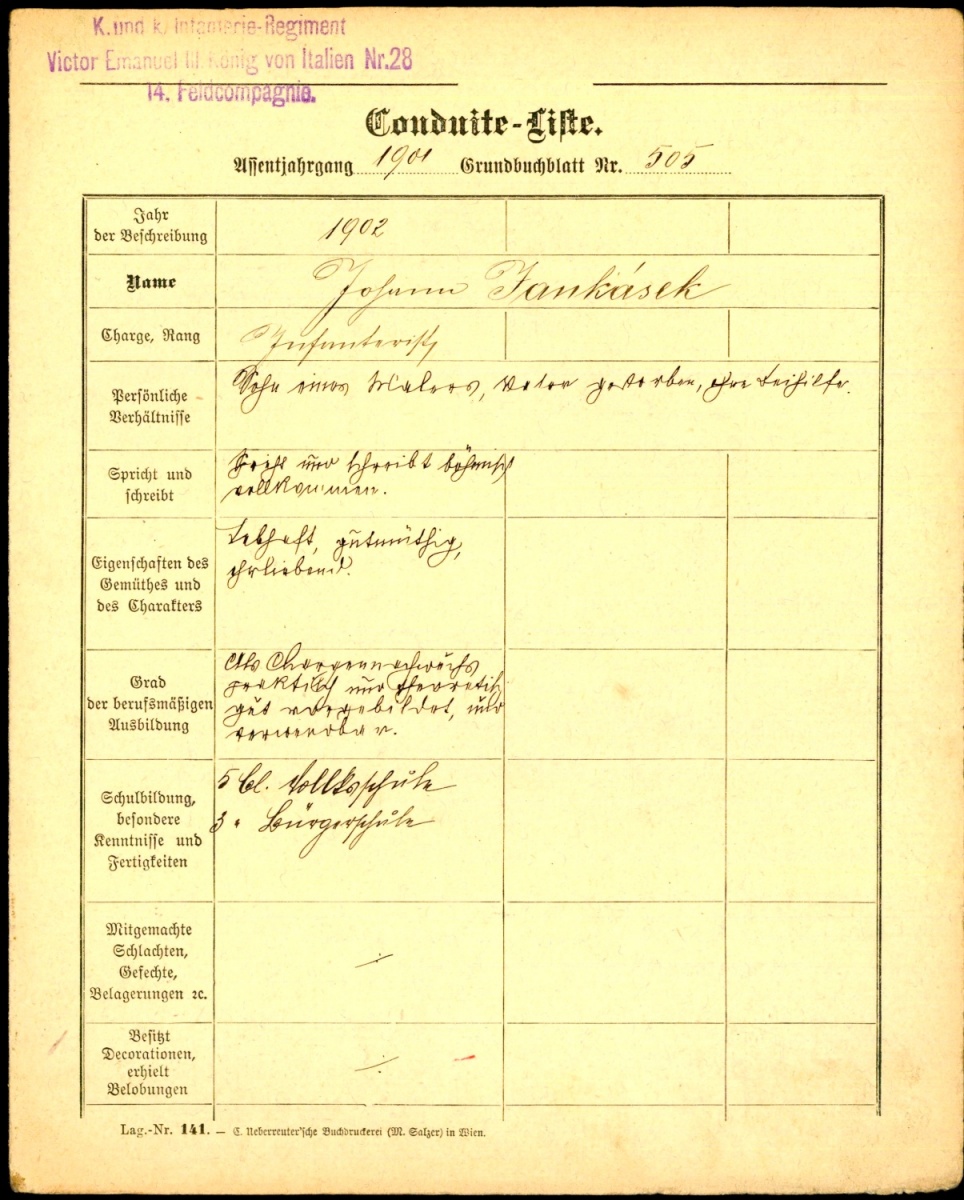 K. und k. Infanterie-Regiment
Victor Emanuel III. König von Italien Nr. 28
14. Feldcompagnie.
Conduite-Liste.
Assentjahrgang 1901 Grundbuchblatt Nr. 505
Jahr
der Beschreibung
1902
Name
Johann Jankásek
Charge, Rang
Infanterist
Persönliche
Verhältnisse
Sohn eines Malers, Vater gestorben, ohne Beihilfe.
Spricht und
schreibt
Spricht und schreibt böhmisch
vollkommen.
Eigenschaften des
Gemüthes und
des Charakters
Lebhaft, gutmüthig,
ehrliebend.
Grad
der berufsmäßigen
Ausbildung
Als Chargennachwuchs
praktisch und theoretisch
gut vorgebildet, und
verwendbar.
Schulbildung,
besondere
Kenntnisse und
Fertigkeiten
5 Cl. Volksschule
3 " Bürgerschule
Mitgemachte
Schlachten,
Gefechte,
Belagerungen ꝛc.
./.
Besitzt
Decorationen,
erhielt
Belobungen
./.
Lag.-Nr. 141. — C. Ueberreuter'sche Buchdruckerei (M. Salzer) in Wien.